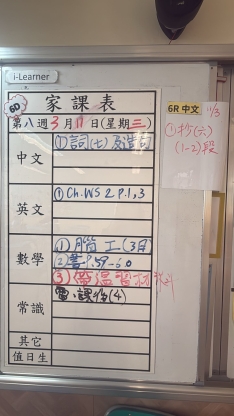 i-Learner
6D
家課表
第八週3月11日(星期三)
中文
①詞(七)及造句
英文
①Ch.WS 2 P.1,3
數學
①腦 工.(3日)
②書P.59-60
③帶溫習材料
常識
電.課後(4)
其它
值日生
6R 中文 11/3
①抄(六)
(1-2)段